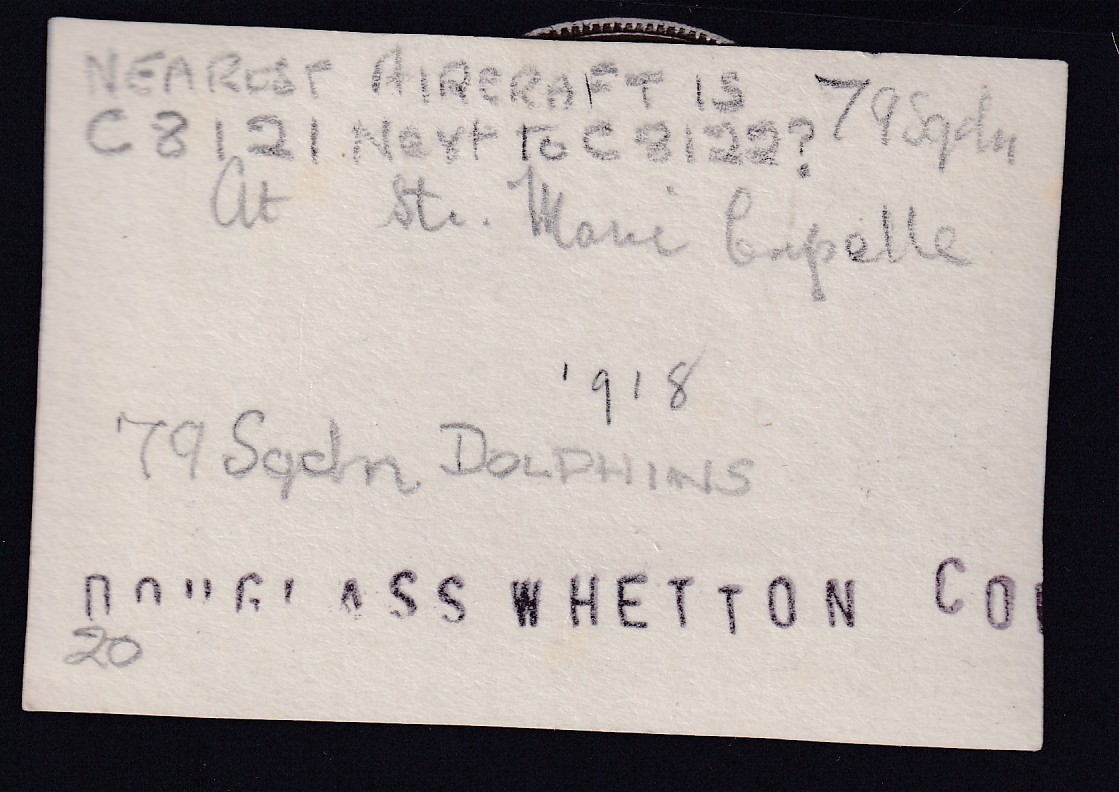 NEAREST AIRCRAFT IS 79 Sqdn
C8121 Next To C8122?
At Ste. Marie Capelle
1918
79 Sqdn DOLPHINS
DOUGLASS WHETTON CO
20